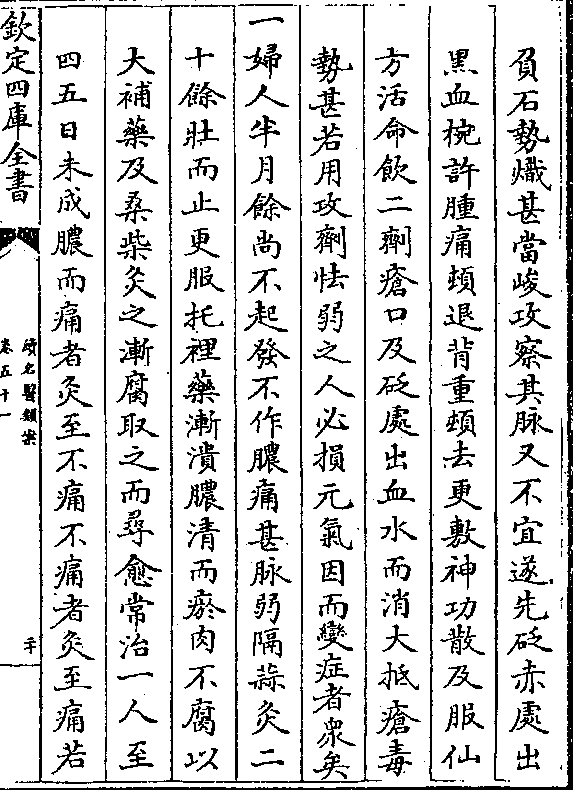 負石勢熾甚當峻攻察其脉又不宜遂先砭赤處出
黑血椀許腫痛頓退背重頓去更敷神功散及服仙
方活命飲二劑瘡口及砭處出血水而消大抵瘡毒
勢甚若用攻劑怯弱之人必損元氣因而變症者衆矣
一婦人半月餘尚不起發不作膿痛甚脉弱隔蒜灸二
十餘壯而止更服托裡藥漸潰膿清而瘀肉不腐以
大補藥及桑柴灸之漸腐取之而尋愈常治一人至
四五日未成膿而痛者灸至不痛不痛者灸至痛若
欽定四庫全書
續名醫類案
卷五十一